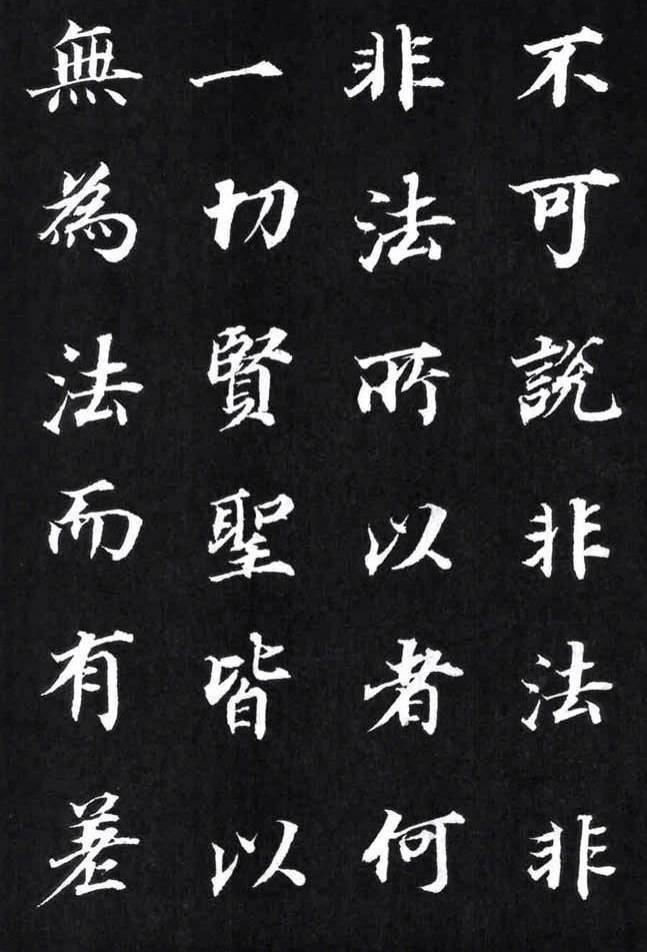 不可說非法非
非法所以者何
一切賢聖皆以
無為法而有差